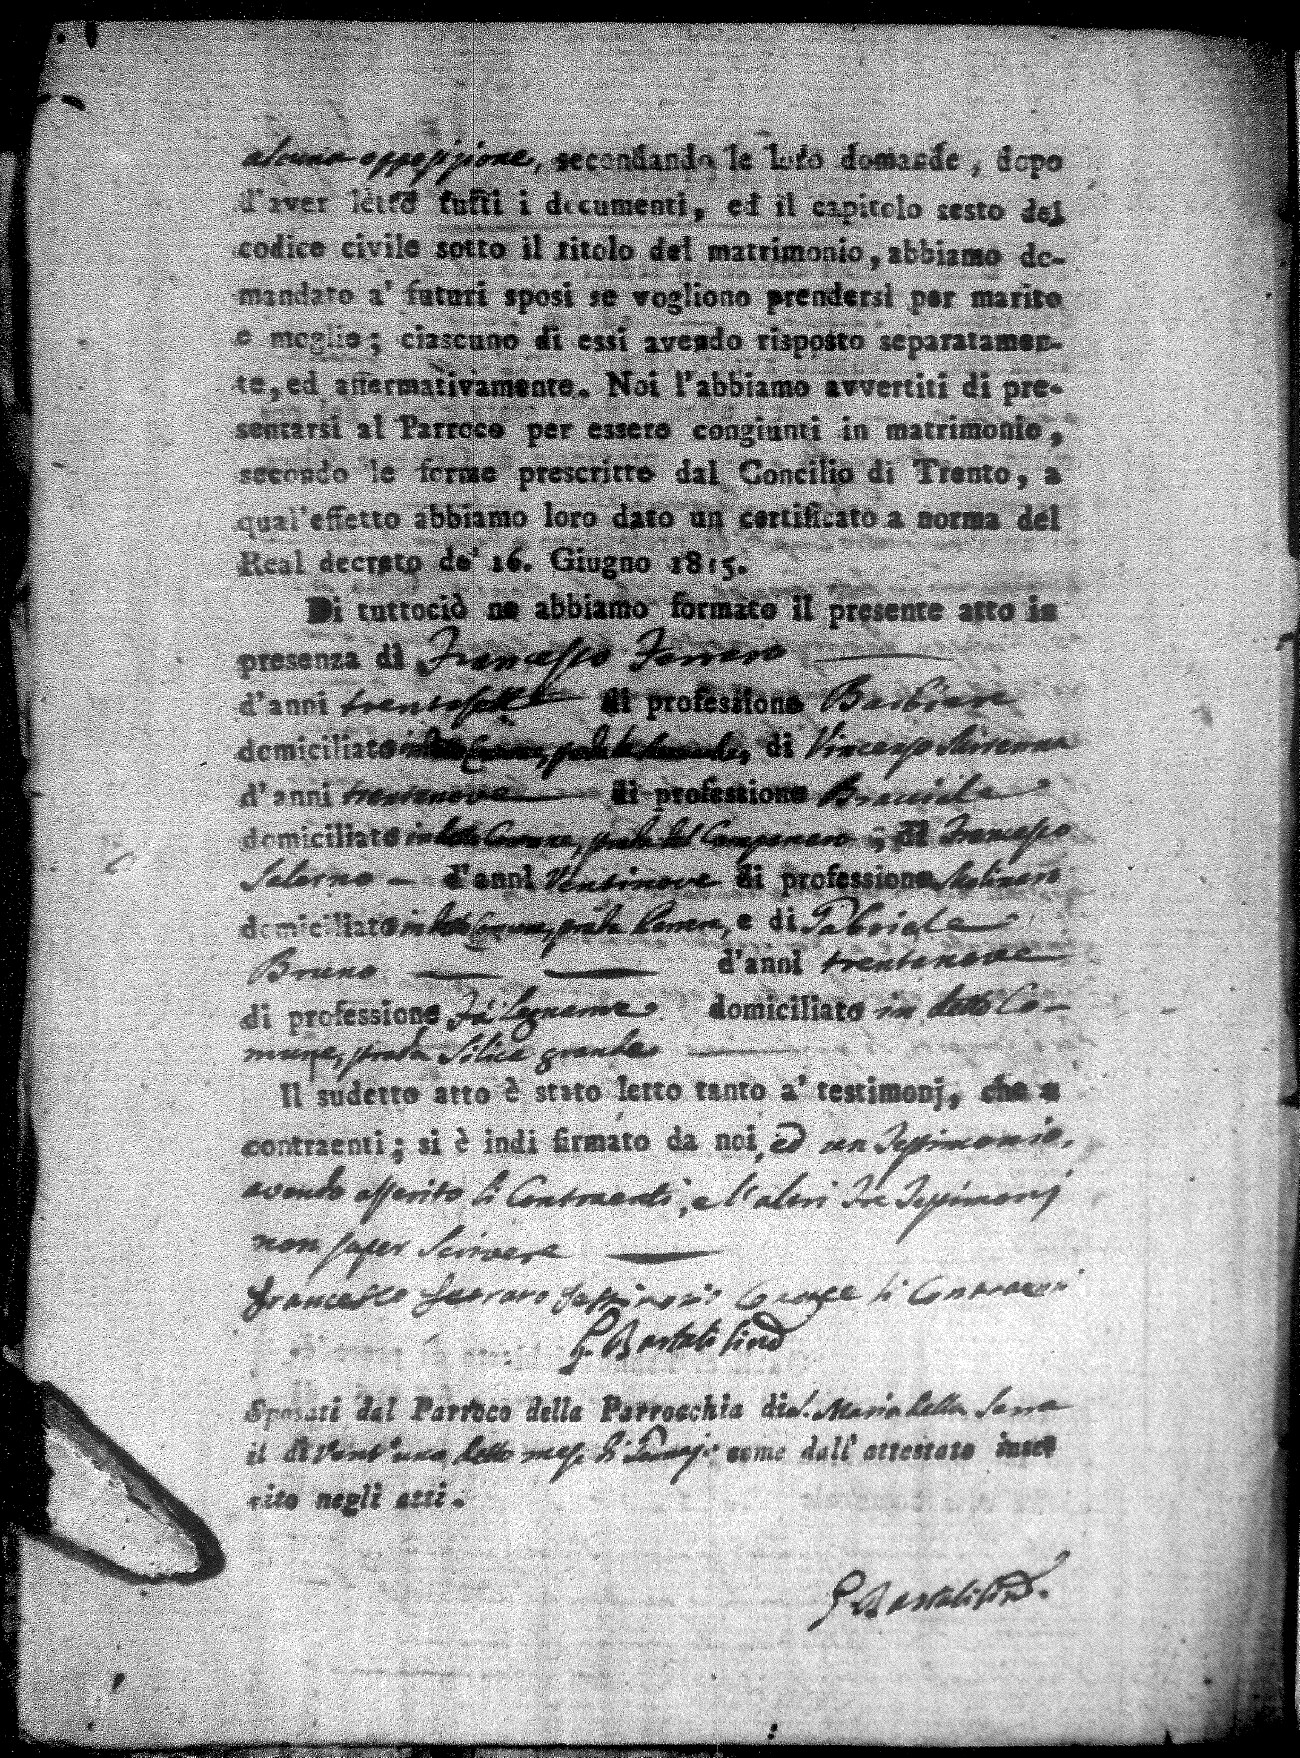 alcuna opposizione, secondando le loro domande, dopo
d'aver letto tutti i documenti, ed il capitolo sesto del
codice civile sotto il titolo del matrimonio, abbiamo do-
mandato a' futuri sposi se vogliono prendersi per marito
e moglie; ciascuno di essi avendo risposto separatamen-
te, ed affermativamente. Noi l'abbiamo avvertiti di pre-
sentarsi al Parroco per essere congiunti in matrimonio,
secondo le forme prescritte dal Concilio di Trento, a
qual'effetto abbiamo loro dato un certificato a norma del
Real decreto de' 16. Giugno 1815.
Di tuttociò ne abbiamo formato il presente atto in
presenza di Francesco Ferraro
d'anni trentasette di professione Barbiere
domiciliato in detto Comune, strada , di Vincenzo
d'anni trentanove di professione Bracciale
domiciliato in detto Comune, strada del Campanaro ; di Francesco
Salerno d'anni Ventinove di professione Molinaro
domiciliato in detto Comune, strada , e di Gabriele
Bruno d'anni trentanove
di professione Falegname domiciliato in detto Co-
mune, strada Silice grande
Il sudetto atto è stato letto tanto a' testimonj, che a
contraenti; si è indi firmato da noi, ed un Testimonio,
avendo asserito li Contraenti, e l'altri tre Testimonj
non saper Scrivere
Francesco Ferraro Testimonio Conosce li Contraenti
G. Bartoli Sind
Sposati dal Parroco della Parrocchia di S. Maria della Serra
il di Vent'uno detto mese di Gennajo come dall'attestato inse
rito negli atti.
G. Bartoli Sind.